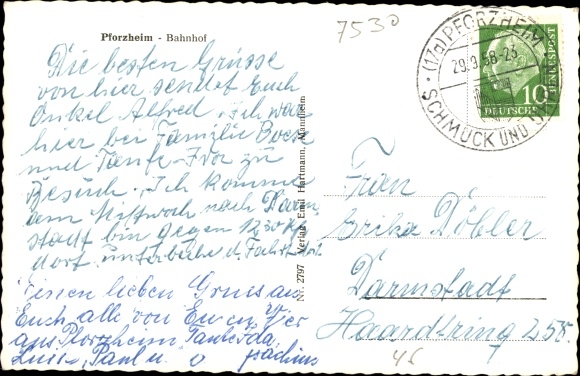 7530
Pforzheim - Bahnhof
Die besten Grüsse
von hier sendet Euch
Onkel Alfred. Ich war
hier bei Familie
und Tante zu
Besuch. Ich komme
am Mittwoch nach Darm
stadt bin gegen 12.30
dort.
einen lieben Gruss an
Euch alle von
aus Pforzheim Tante
Luise, Paul u. Joachim
Nr. 2797 Verlag Emil Hartmann, Mannheim
(17a) PFORZHEIM
29.9.58-23
SCHMUCK UND
10
DEUTSCHE
BUNDESPOST
Frau
Erika Döbler
Darmstadt
Haardtring 255.